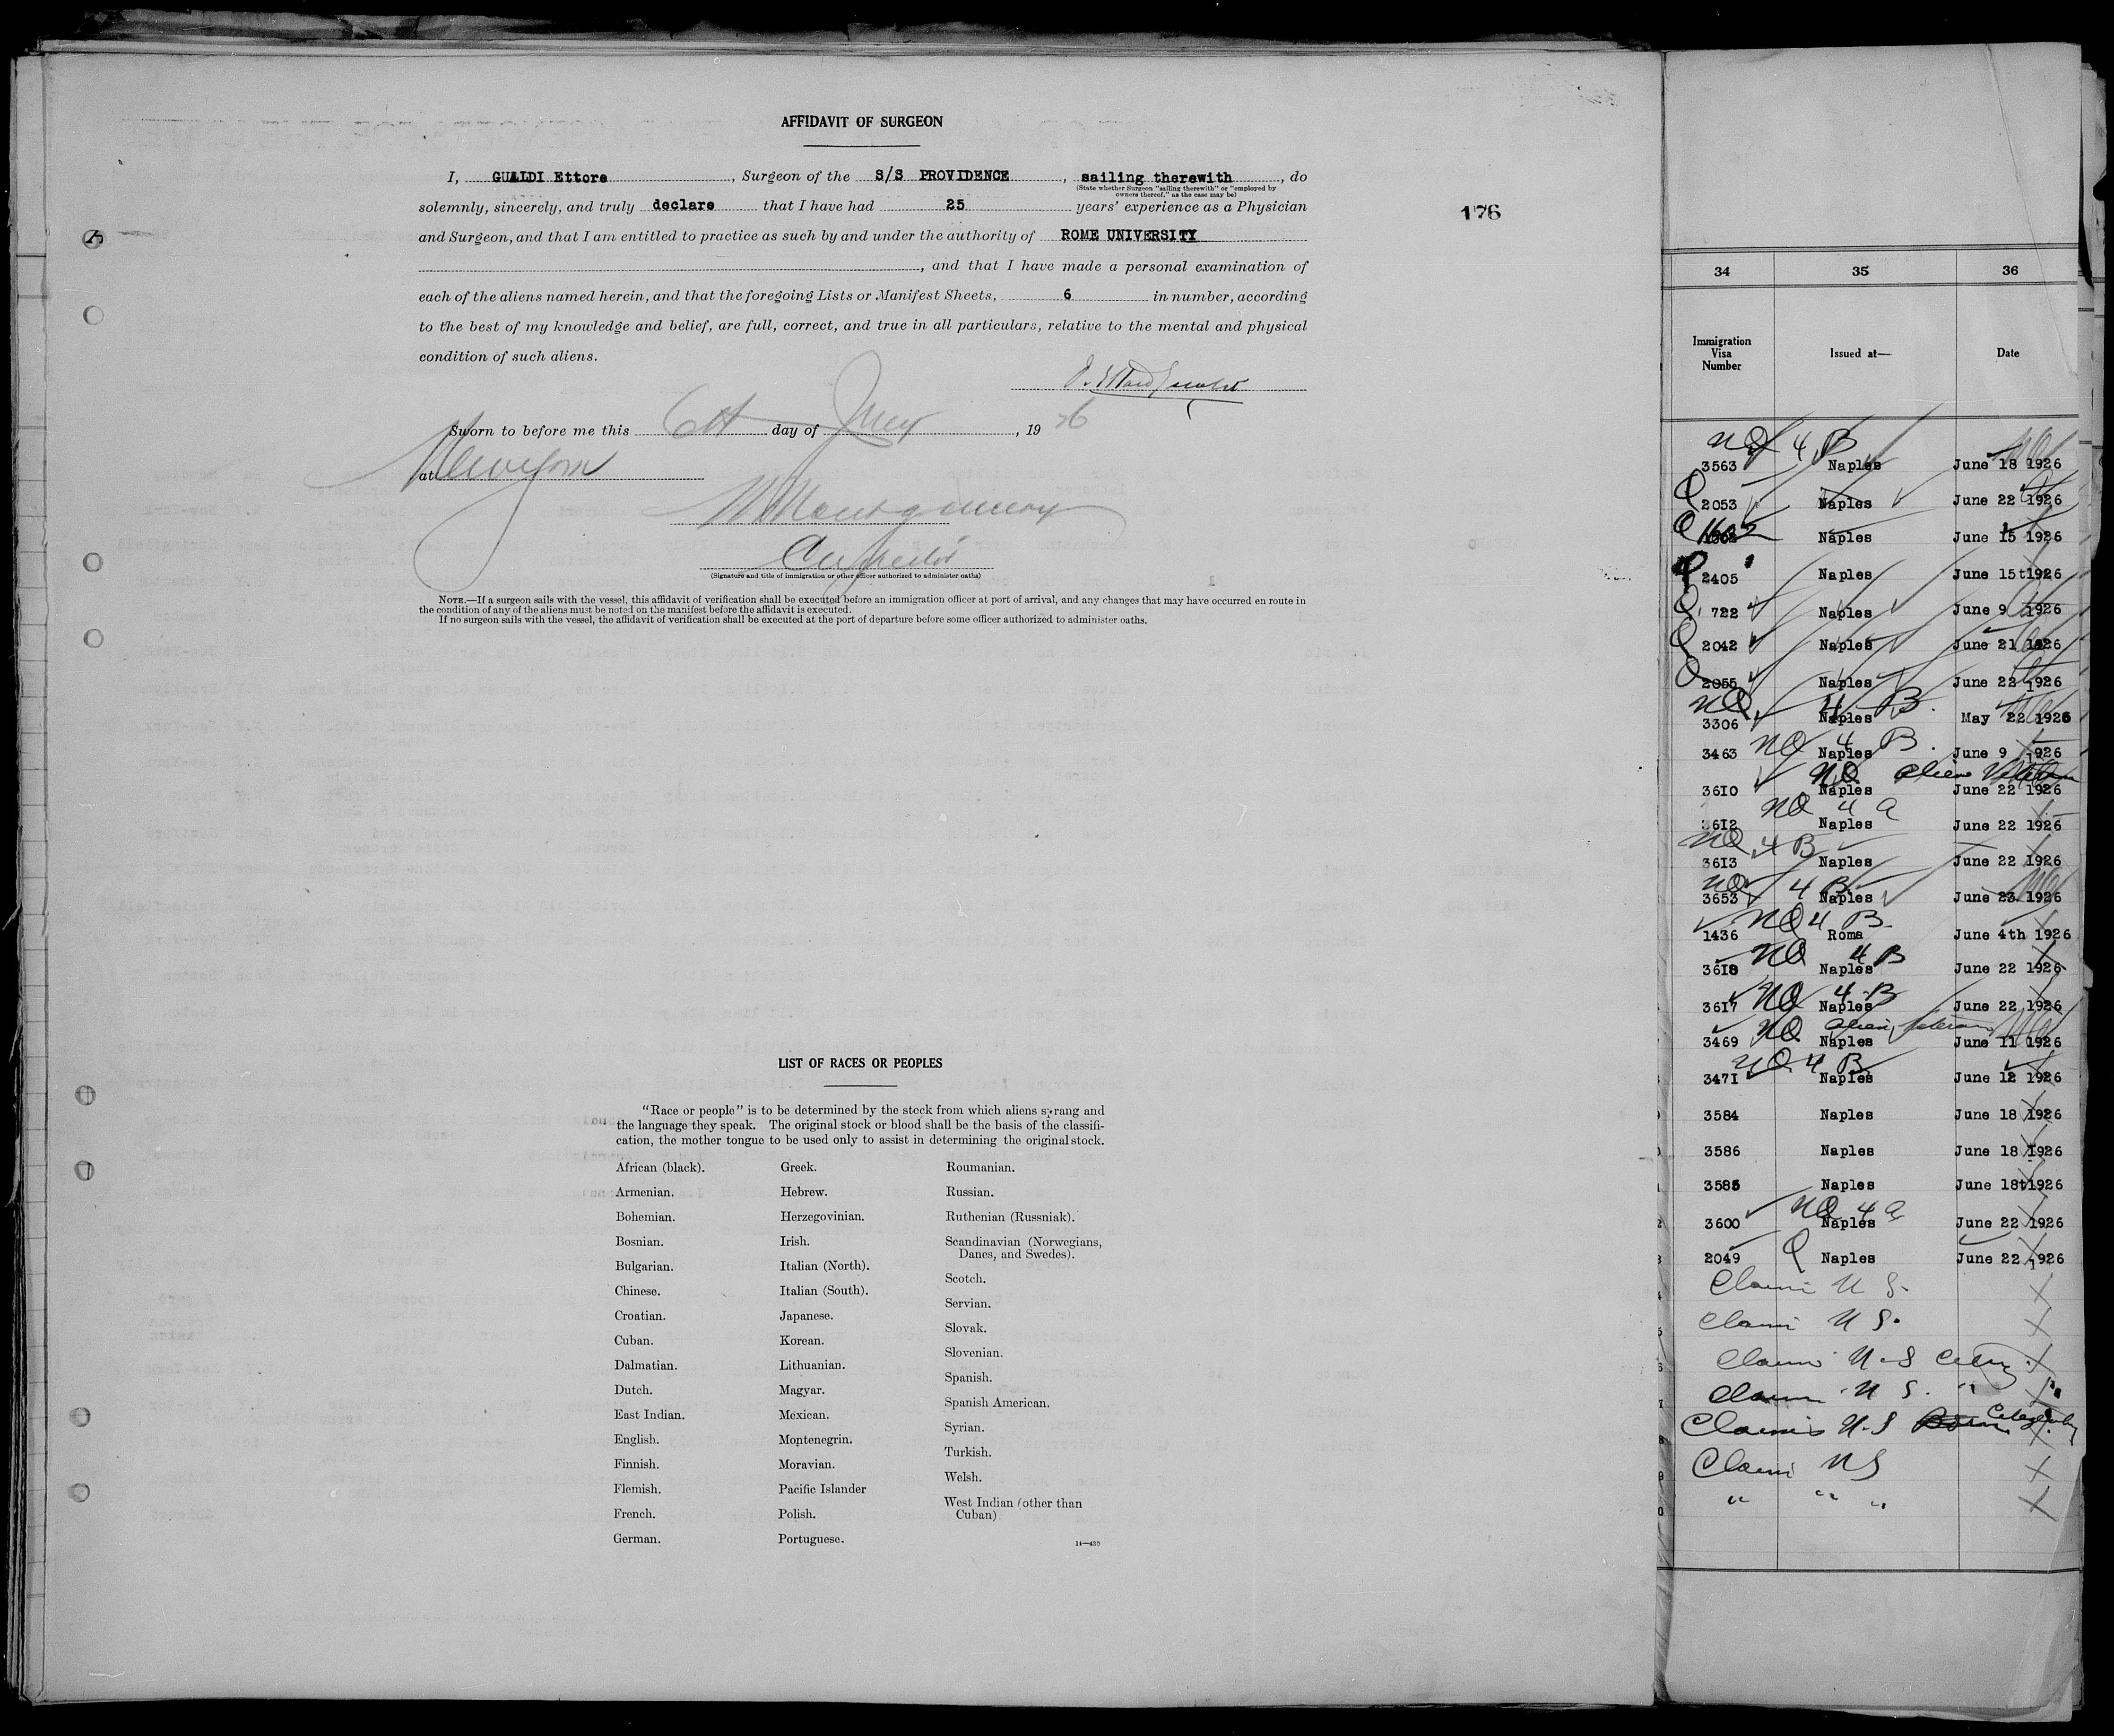 AFFIDAVIT OF SURGEON
I, GUALDI Ettore, Surgeon of the S/S PROVIDENCE, sailing therewith, do
(State whether Surgeon "sailing therewith" or "employed by
owners thereof," as the case may be)
solemnly, sincerely, and truly declare that I have had 25 years' experience as a Physician
and Surgeon, and that I am entitled to practice as such by and under the authority of ROME UNIVERSITY
, and that I have made a personal examination of
each of the aliens named herein, and that the foregoing Lists or Manifest Sheets, 6 in number, according
to the best of my knowledge and belief, are full, correct, and true in all particulars, relative to the mental and physical
condition of such aliens.
Sworn to before me this 6th day of July, 19 26
at New York
Montgomery
Inspector
(Signature and title of immigration or other officer authorized to administer oaths)
NOTE.—If a surgeon sails with the vessel, this affidavit of verification shall be executed before an immigration officer at port of arrival, and any changes that may have occurred en route in
the condition of any of the aliens must be noted on the manifest before the affidavit is executed.
If no surgeon sails with the vessel, the affidavit of verification shall be executed at the port of departure before some officer authorized to administer oaths.
176
LIST OF RACES OR PEOPLES
"Race or people" is to be determined by the stock from which aliens sprang and
the language they speak. The original stock or blood shall be the basis of the classifi-
cation, the mother tongue to be used only to assist in determining the original stock.
African (black).
Armenian.
Bohemian.
Bosnian.
Bulgarian.
Chinese.
Croatian.
Cuban.
Dalmatian.
Dutch.
East Indian.
English.
Finnish.
Flemish.
French.
German.
Greek.
Hebrew.
Herzegovinian.
Irish.
Italian (North).
Italian (South).
Japanese.
Korean.
Lithuanian.
Magyar.
Mexican.
Montenegrin.
Moravian.
Pacific Islander
Polish.
Portuguese.
Roumanian.
Russian.
Ruthenian (Russniak).
Scandinavian (Norwegians,
Danes, and Swedes).
Scotch.
Servian.
Slovak.
Slovenian.
Spanish.
Spanish American.
Syrian.
Turkish.
Welsh.
West Indian (other than
Cuban)
14—430
34 35 36
Immigration
Visa
Number
Issued at—
Date
NQ 4 B
3563 Naples June 18 1926
Q 2053 Naples June 22 1926
Q Naples June 15 1926
2405 Naples June 15t1926
Q 722 Naples June 9 1926
Q 2042 Naples June 21 1926
Q 2055 Naples June 22 1926
NQ 4 B.
3306 Naples May 22 1926
NQ 4 B.
3463 Naples June 9 1926
NQ. Alien Veteran
3610 Naples June 22 1926
NQ 4 a
3612 Naples June 22 1926
NQ 4 B
3613 Naples June 22 1926
NQ 4 B
3653 Naples June 23 1926
NQ 4 B
1436 Roma June 4th 1926
NQ 4 B
3618 Naples June 22 1926
NQ 4 B
3617 Naples June 22 1926
NQ. Alien Veteran
3469 Naples June 11 1926
NQ. 4 B
3471 Naples June 12 1926
3584 Naples June 18 1926
3586 Naples June 18 1926
3585 Naples June 18t1926
NQ 4 a
3600 Naples June 22 1926
2049 Q Naples June 22 1926
Claim U S.
Claim U S.
Claim U.S
Claim U S. "
Claims U.S
Claim U S
" " "